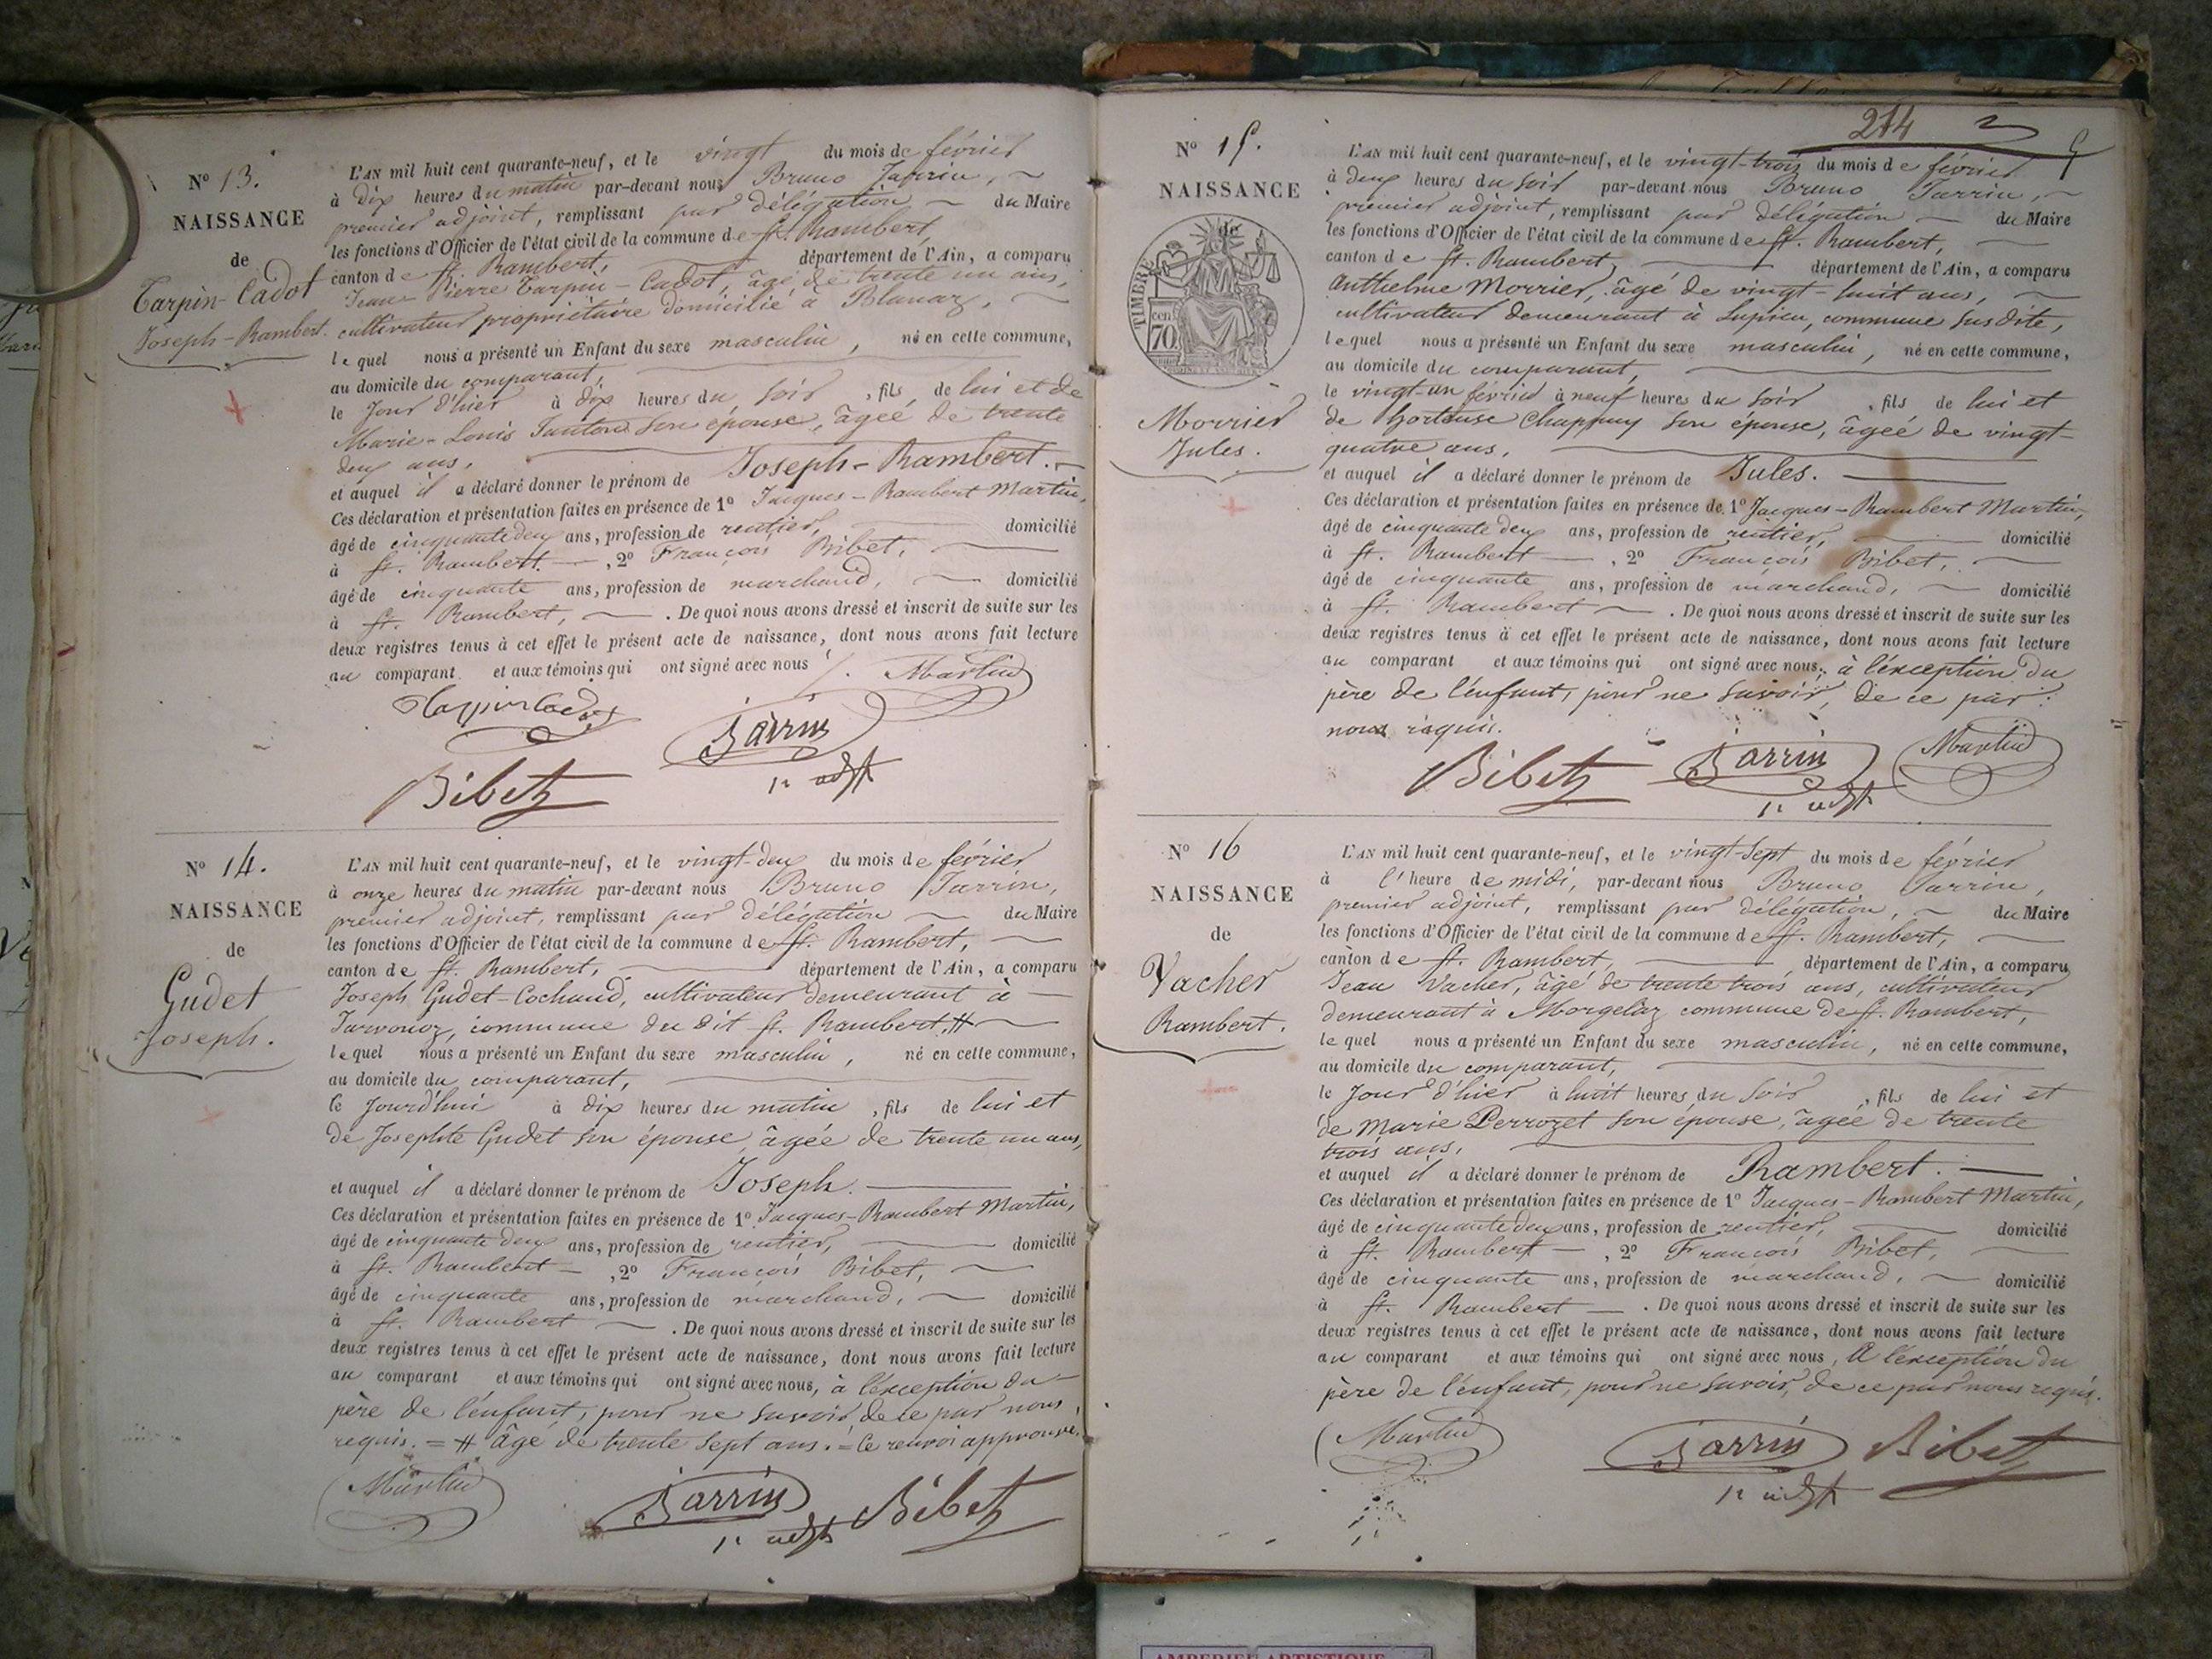 N° 13.
NAISSANCE
de
Tarpin-Cadot
Joseph-Rambert.
L'AN mil huit cent quarante-neuf, et le vingt du mois de février
à dix heures du matin par-devant nous Bruno Jarrin,
premier adjoint, remplissant par délégation du Maire
les fonctions d'Officier de l'état civil de la commune de St. Rambert,
canton de St. Rambert, département de l'Ain, a comparu
Jean-Pierre Tarpin-Cadot, âgé de trente un ans,
cultivateur propriétaire domicilié à Blanaz,
lequel nous a présenté un Enfant du sexe masculin, né en cette commune,
au domicile du comparant,
le jour d'hier à dix heures du soir, fils de lui et de
Marie-Louis son épouse, âgée de trente
deux ans,
et auquel il a déclaré donner le prénom de Joseph-Rambert.
Ces déclaration et présentation faites en présence de 1° Jacques-Rambert Martin,
âgé de cinquante deux ans, profession de rentier, domicilié
à St. Rambert, 2° François Bibet,
âgé de cinquante ans, profession de marchand, domicilié
à St. Rambert, . De quoi nous avons dressé et inscrit de suite sur les
deux registres tenus à cet effet le présent acte de naissance, dont nous avons fait lecture
au comparant et aux témoins qui ont signé avec nous
Martin
Tarpin Cadot
Jarrin
1r adjt
Bibet
N° 14.
NAISSANCE
de
Gudet
Joseph.
L'AN mil huit cent quarante-neuf, et le vingt-deux du mois de février
à onze heures du matin par-devant nous Bruno Jarrin,
premier adjoint, remplissant par délégation du Maire
les fonctions d'Officier de l'état civil de la commune de St. Rambert,
canton de St. Rambert, département de l'Ain, a comparu
Joseph Gudet-Cochaud, cultivateur demeurant à
Javornoz, commune du dit St. Rambert, #
lequel nous a présenté un Enfant du sexe masculin, né en cette commune,
au domicile du comparant,
le jourd'hui à dix heures du matin, fils de lui et
de Josephte Gudet son épouse, âgée de trente un ans,
et auquel il a déclaré donner le prénom de Joseph.
Ces déclaration et présentation faites en présence de 1° Jacques-Rambert Martin,
âgé de cinquante deux ans, profession de rentier, domicilié
à St. Rambert, 2° François Bibet,
âgé de cinquante ans, profession de marchand, domicilié
à St. Rambert . De quoi nous avons dressé et inscrit de suite sur les
deux registres tenus à cet effet le présent acte de naissance, dont nous avons fait lecture
au comparant et aux témoins qui ont signé avec nous, à l'exception du
père de l'enfant, pour ne savoir, de ce par nous
requis. = # âgé de trente sept ans. = Ce renvoi approuvé.
Martin
Jarrin
1r adjt
Bibet
214
N° 15.
NAISSANCE
de
TIMBRE
70 cen
Morrier
Jules.
L'AN mil huit cent quarante-neuf, et le vingt-trois du mois de février
à deux heures du soir par-devant nous Bruno Jarrin,
premier adjoint, remplissant par délégation du Maire
les fonctions d'Officier de l'état civil de la commune de St. Rambert,
canton de St. Rambert, département de l'Ain, a comparu
Anthelme Morrier, âgé de vingt-huit ans,
cultivateur demeurant à Lupieu, commune susdite,
lequel nous a présenté un Enfant du sexe masculin, né en cette commune,
au domicile du comparant,
le vingt-un février à neuf heures du soir, fils de lui et
de Hortense Chappuy son épouse, âgée de vingt-
quatre ans,
et auquel il a déclaré donner le prénom de Jules.
Ces déclaration et présentation faites en présence de 1° Jacques-Rambert Martin,
âgé de cinquante deux ans, profession de rentier, domicilié
à St. Rambert, 2° François Bibet,
âgé de cinquante ans, profession de marchand, domicilié
à St. Rambert . De quoi nous avons dressé et inscrit de suite sur les
deux registres tenus à cet effet le présent acte de naissance, dont nous avons fait lecture
au comparant et aux témoins qui ont signé avec nous, à l'exception du
père de l'enfant, pour ne savoir, de ce par
nous requis.
Bibet
Jarrin
1r adjt
Martin
N° 16
NAISSANCE
de
Vacher
Rambert.
L'AN mil huit cent quarante-neuf, et le vingt-sept du mois de février
à l'heure de midi, par-devant nous Bruno Jarrin,
premier adjoint, remplissant par délégation, du Maire
les fonctions d'Officier de l'état civil de la commune de St. Rambert,
canton de St. Rambert, département de l'Ain, a comparu
Jean Vacher, âgé de trente trois ans, cultivateur
demeurant à Morgelaz commune de St. Rambert,
lequel nous a présenté un Enfant du sexe masculin, né en cette commune,
au domicile du comparant,
le jour d'hier à huit heures du soir, fils de lui et
de Marie Perrozet son épouse, âgée de trente
trois ans,
et auquel il a déclaré donner le prénom de Rambert.
Ces déclaration et présentation faites en présence de 1° Jacques-Rambert Martin,
âgé de cinquante deux ans, profession de rentier, domicilié
à St. Rambert, 2° François Bibet,
âgé de cinquante ans, profession de marchand, domicilié
à St. Rambert . De quoi nous avons dressé et inscrit de suite sur les
deux registres tenus à cet effet le présent acte de naissance, dont nous avons fait lecture
au comparant et aux témoins qui ont signé avec nous, à l'exception du
père de l'enfant, pour ne savoir, de ce par nous requis.
Martin
Jarrin
1r adjt
Bibet
AMBERIEU ARTISTIQUE